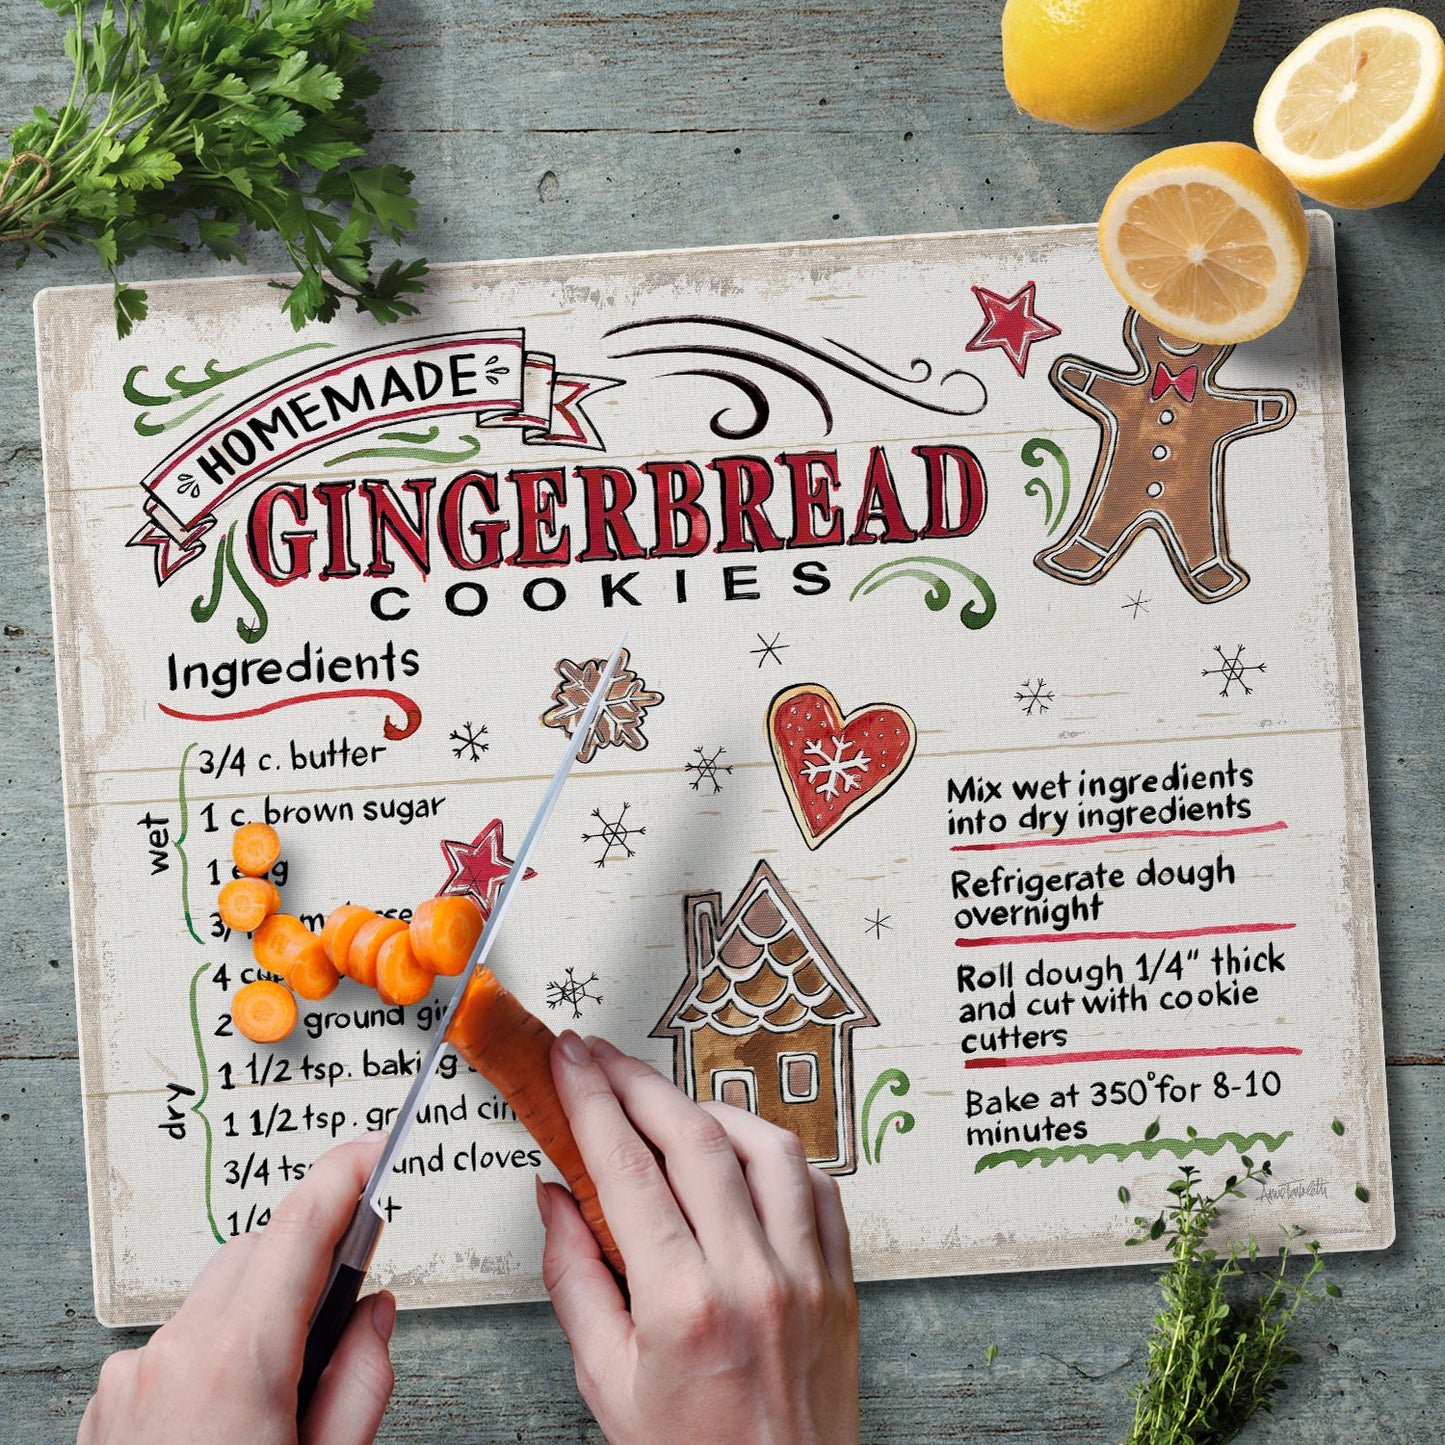 HOMEMADE
GINGERBREAD
COOKIES
Ingredients
wet
3/4 c. butter
1 c. brown sugar
1
3/
dry
4
2 ground
1 1/2 tsp. baking
1 1/2 tsp. ground
3/4 cloves
1/4
Mix wet ingredients
into dry ingredients
Refrigerate dough
overnight
Roll dough 1/4" thick
and cut with cookie
cutters
Bake at 350° for 8-10
minutes